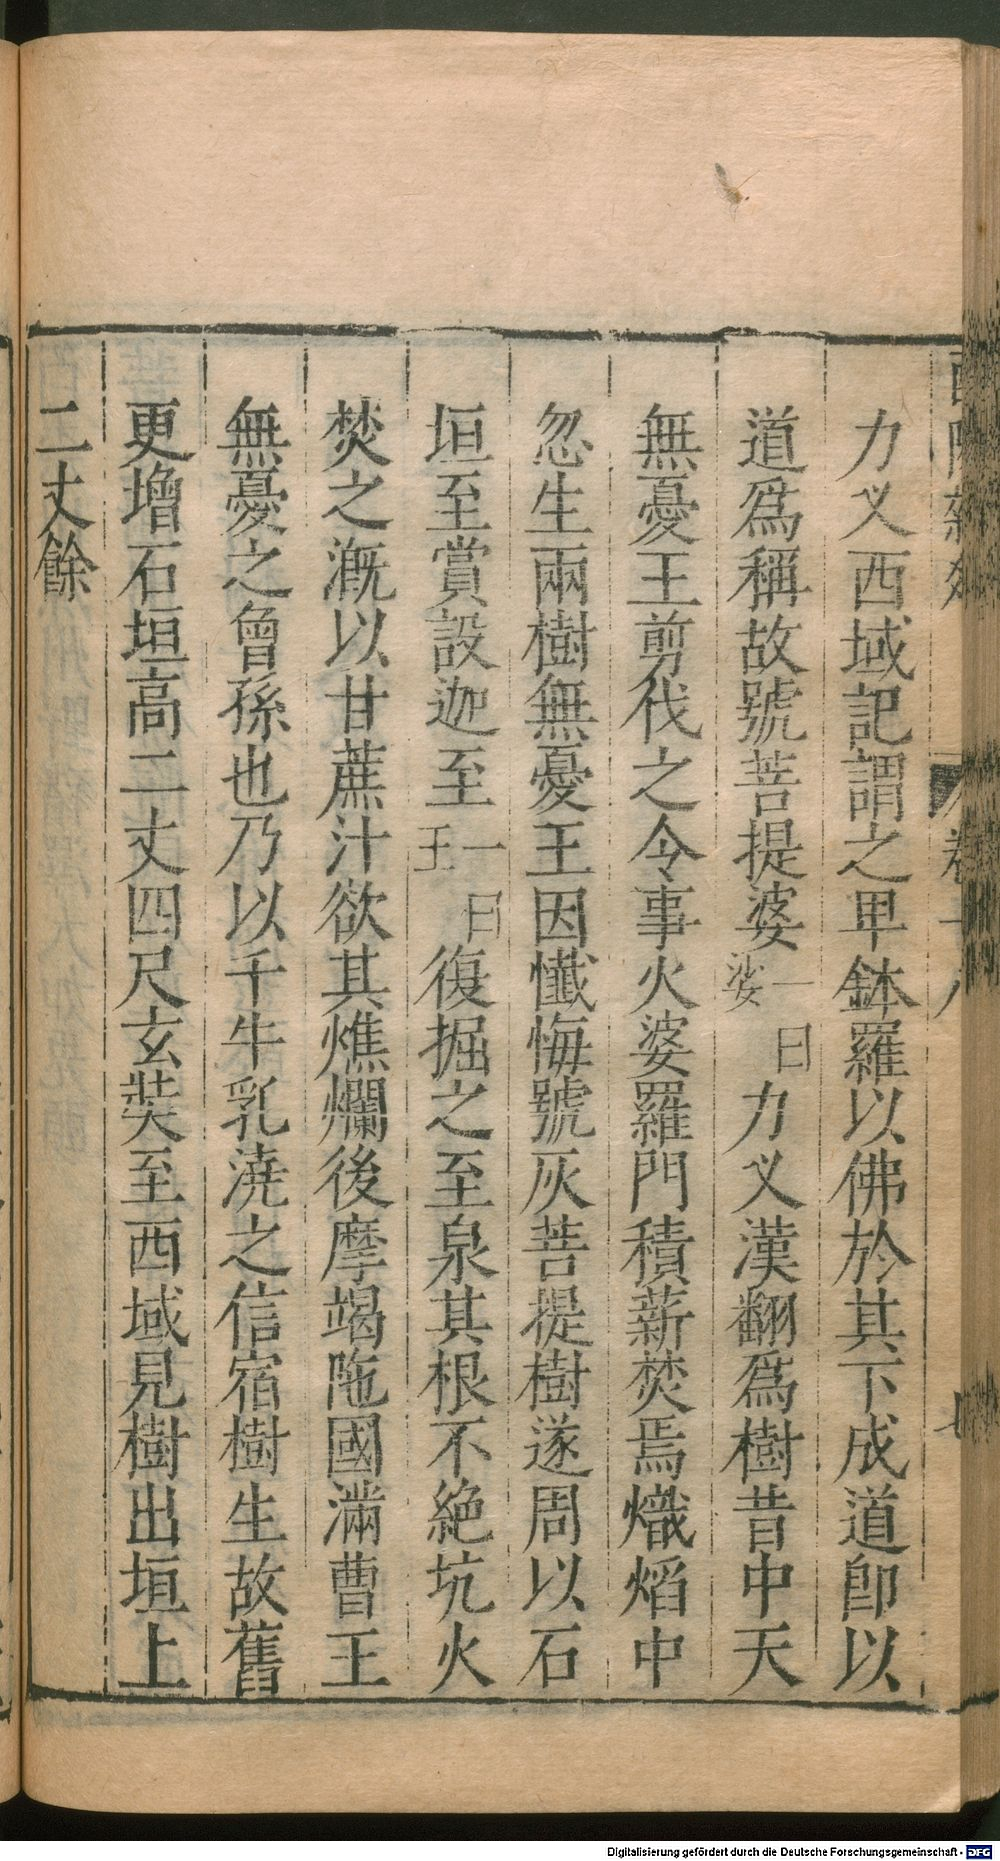 力义西域記謂之卑鉢羅以佛於其下成道即以
道爲稱故號菩提婆一曰娑力义漢翻爲樹昔中天
無憂王剪伐之令事火婆羅門積薪焚焉熾熖中
忽生兩樹無憂王因懺悔號灰菩提樹遂周以石
垣至賞設迦至一曰王復掘之至泉其根不絶坑火
焚之漑以甘蔗汁欲其燋爛後摩竭陁國滿曹王
無憂之曾孫也乃以千牛乳澆之信宿樹生故舊
更增石垣高二丈四尺玄奘至西域見樹出垣上
二丈餘
Digitalisierung gefördert durch die Deutsche Forschungsgemeinschaft - DFG